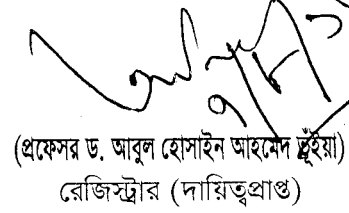 (প্রফেসর ড. আবুল হোসাইন আহমেদ ভূঁইয়া)
রেজিস্ট্রার (দায়িত্বপ্রাপ্ত)